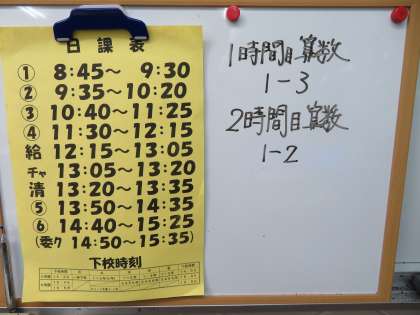 日課表
① 8:45～ 9:30
② 9:35～10:20
③ 10:40～11:25
④ 11:30～12:15
給 12:15～13:05
チャ 13:05～13:20
清 13:20～13:35
⑤ 13:50～14:35
⑥ 14:40～15:25
(委ク 14:50～15:35)
下校時刻
1時間目 算数
1－3
2時間目 算数
1－2